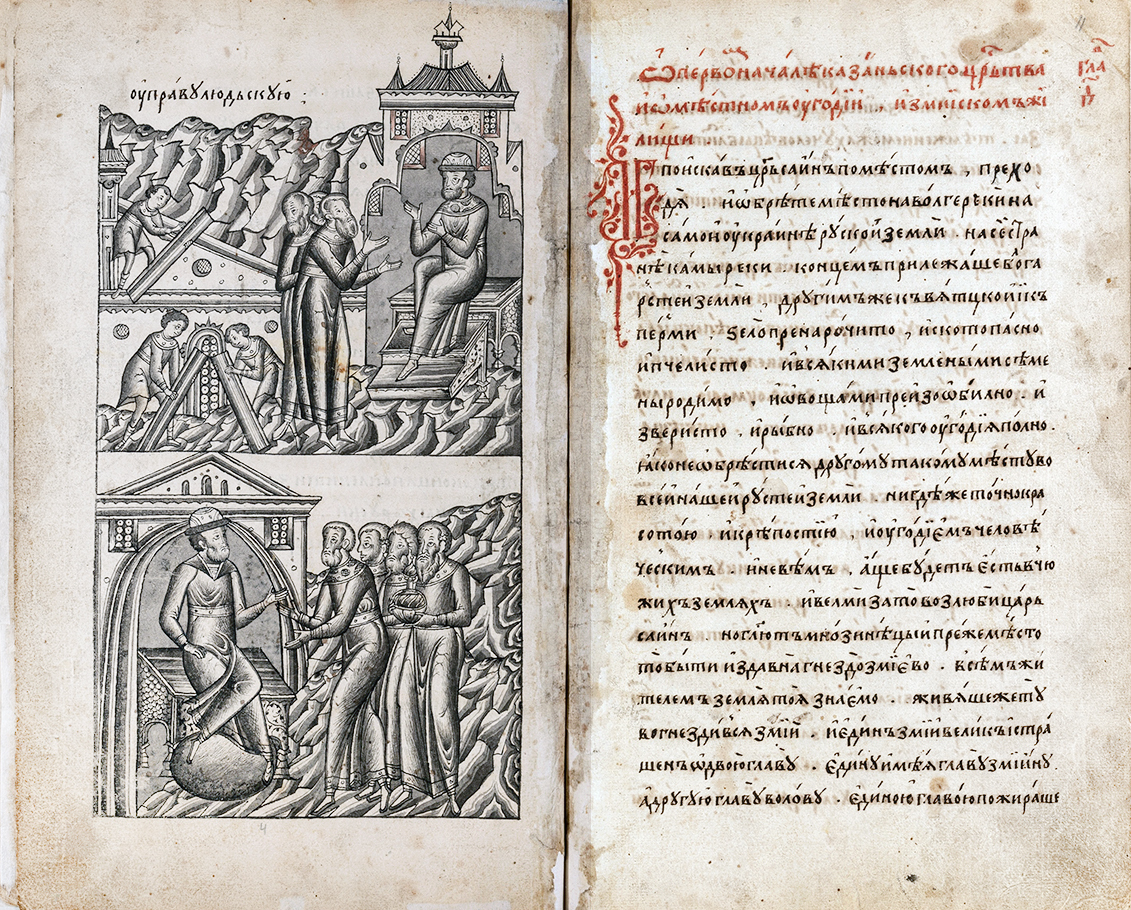 оуправу людьскую
Ѡ первѡ началѣ казаньского црⷭ҇тва
и ѡ мѣстномъ оугодїи . и змиискомъ жи
лищи .
Поискавъ цр҃ь саинъ по мѣстомъ , прехо
дя . и ѡбрѣте мѣсто на волге реки на
самои оукраинѣ руской земли . на сеи стра
нѣ камы реки . концемъ прилежаше к бѡлга
рстеи земли , другимъ же к вятцкои и къ
перми . ѕело пренарочито , и скотопасно
и пчелисто . и всякими земеными сѣме
ны родимо , и ѡвощами преизоѡбилно . и
зверисто . и рыбно . и всякого оугодїя полно .
яко не ѡбрѣстися другому такому мѣсту во
всеи нашеи рустеи земли . нигдѣ же точно кра
сотою . и крѣпостию , и оугодїемъ человѣ
ческимъ . и не вѣмъ , аще будетъ есть в чю
жихъ земляхъ . и велми за то возлюби царь
саинъ но глю҃тъ мнози нѣцыи преже мѣсто
то быти издавна гнездо змиево . всѣмъ жи
телемъ земля тоя знаемо . живяше же ту
вогнездився змїи . и единъ змїи великъ и стра
шенъ ѡ двою главу . едину имѣя главу змиину .
а другую главу волову . единою главою пожираше
гла
11
4